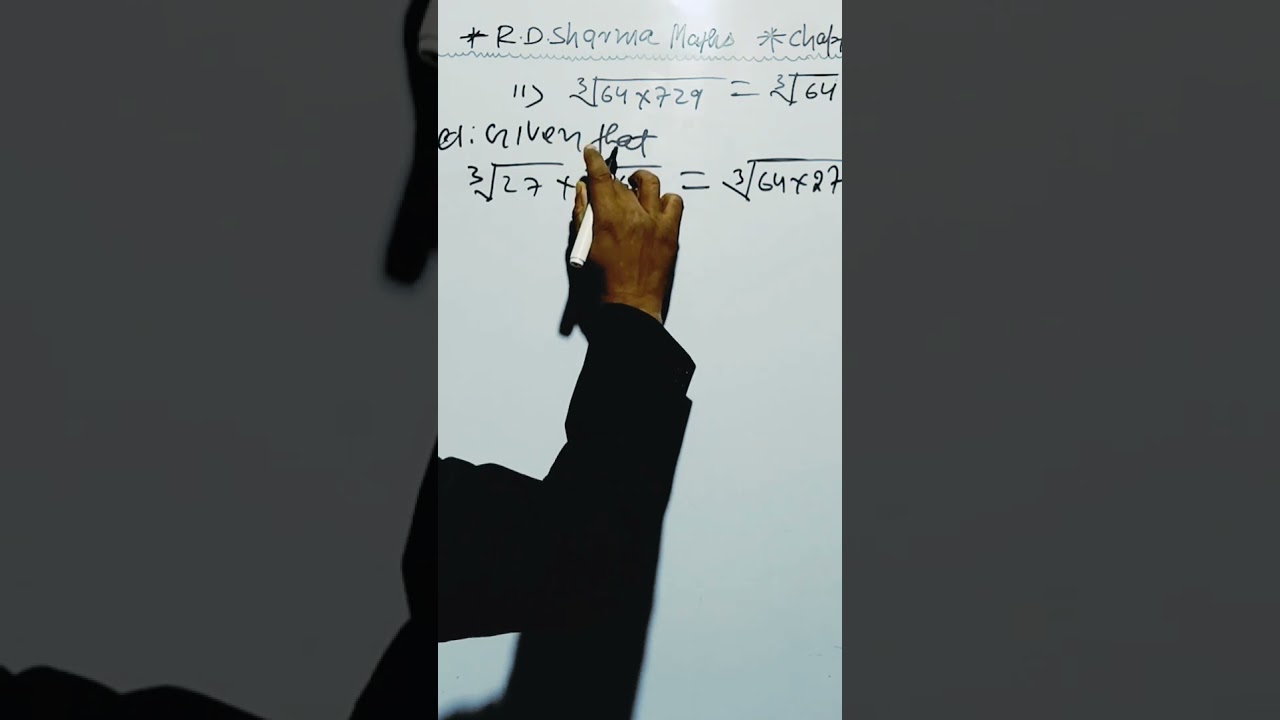 * R.D. Sharma Maths * Chap
11) ∛64×729 = ∛64
Given that
∛27 × = ∛64×27